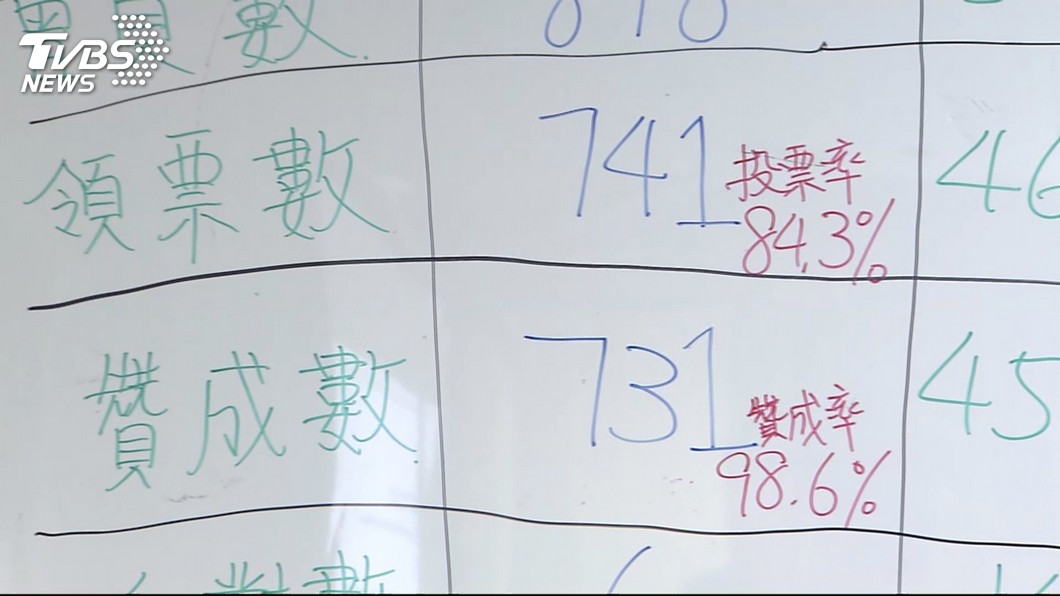 TVBS
NEWS
會員數
領票數 741 投票率 46
84.3%
贊成數 731 贊成率 45
98.6%
對數